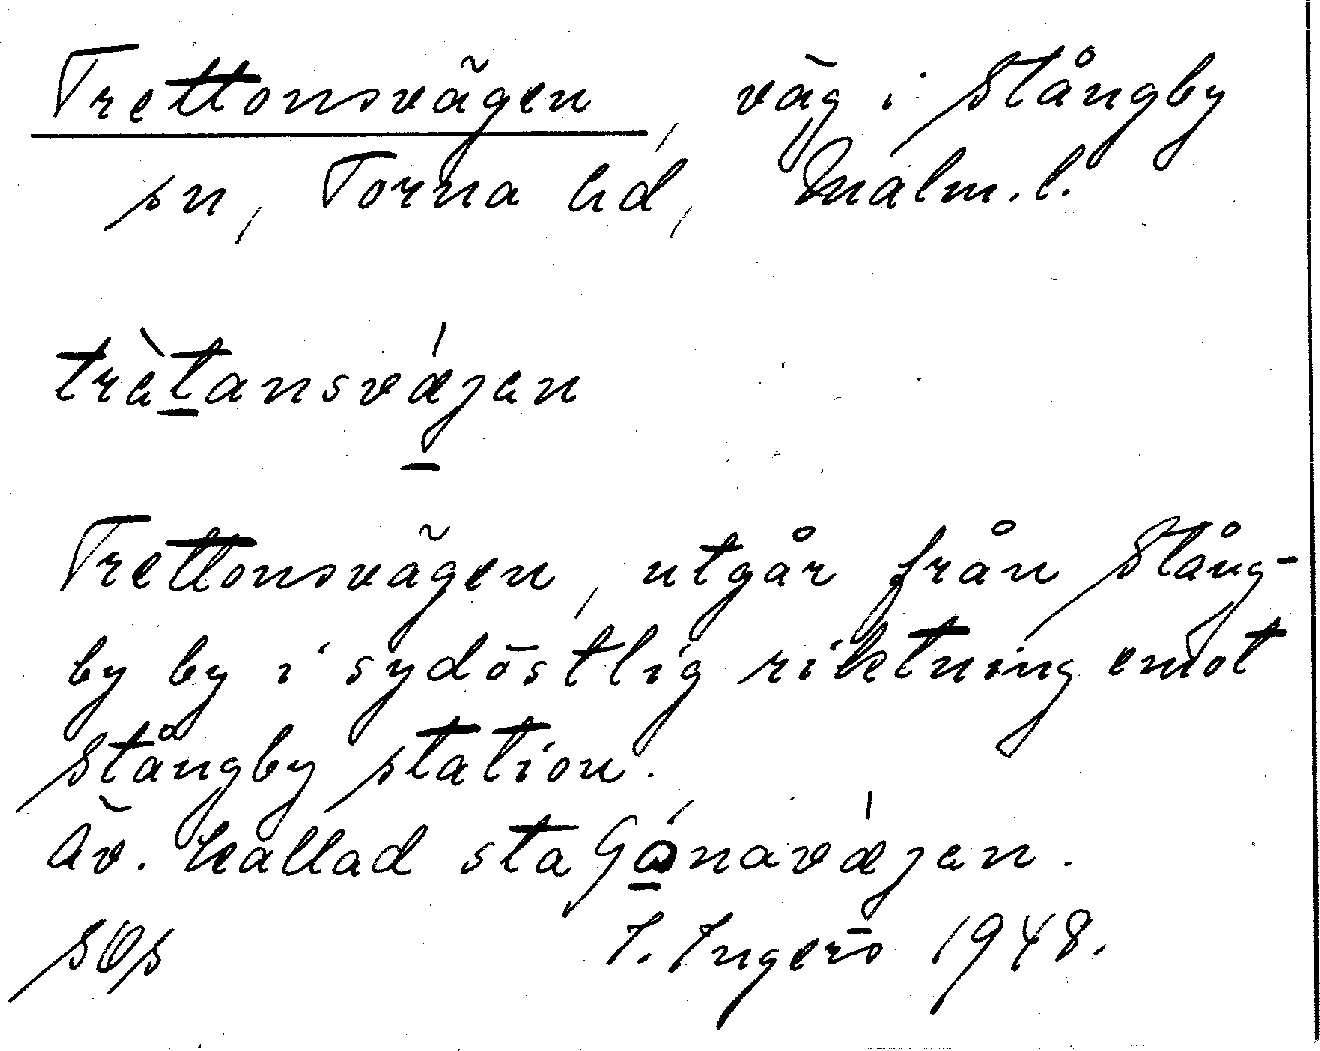 Trettonsvägen, väg i Stångby
sn, Torna hd, Malm. l.
trètansvǽjen
Trettonsvägen, utgår från Stång-
by by i sydöstlig riktning emot
Stångby station.
Äv. kallad
I. Ingers 1948.